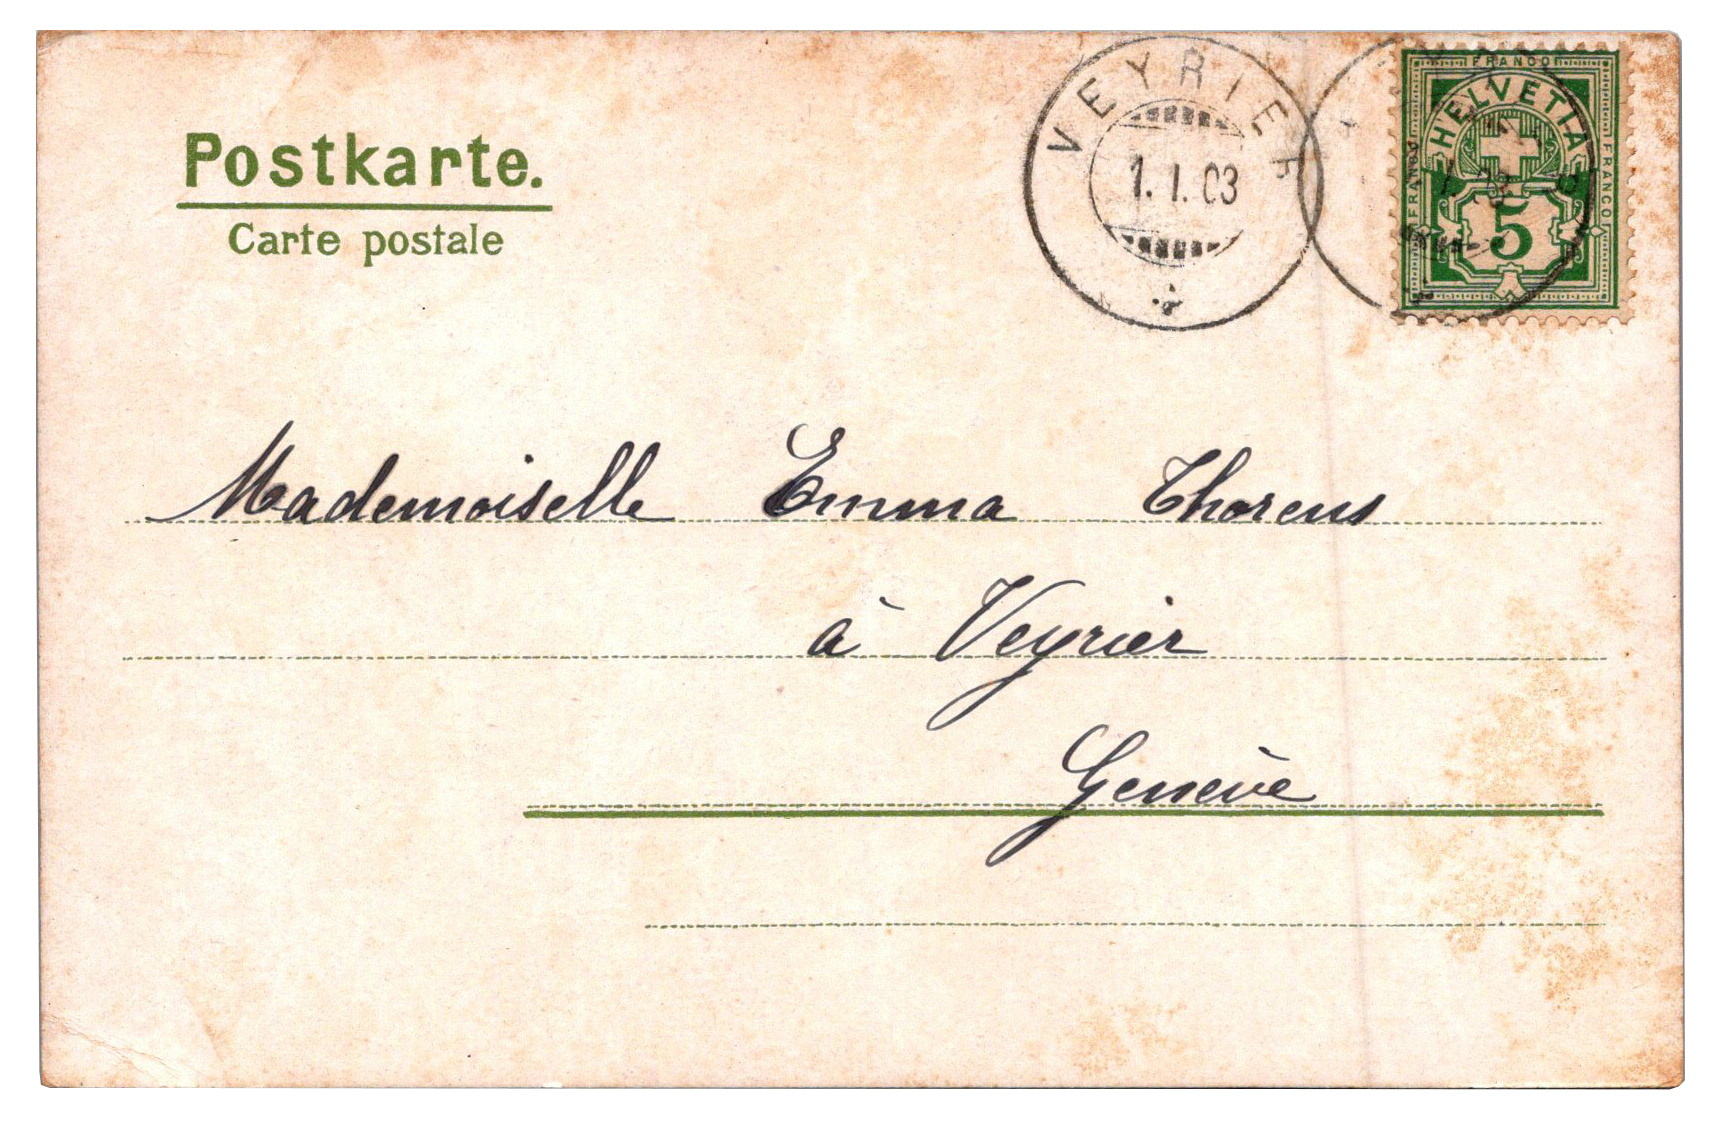 Postkarte.
Carte postale
VEYRIER
1. I. 03
FRANCO
HELVETIA
FRANCO
FRANCO
5
Mademoiselle Emma Thorens
à Veyrier
Genève